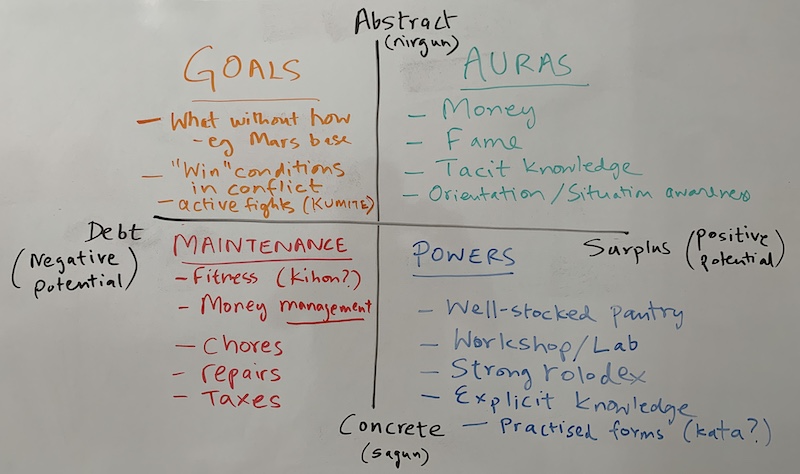 Abstract
(nirgun)
GOALS
- What without how
- eg Mars base
- "Win" conditions
in conflict
- active fights (KUMITE)
AURAS
- Money
- Fame
- Tacit knowledge
- Orientation/Situation awareness
Debt
(Negative
potential)
Surplus (positive
potential)
MAINTENANCE
- Fitness (kihon?)
- Money management
- Chores
- repairs
- Taxes
POWERS
- Well-stocked pantry
- Workshop/Lab
- Strong rolodex
- Explicit knowledge
- Practised forms (kata?)
Concrete
(sagun)